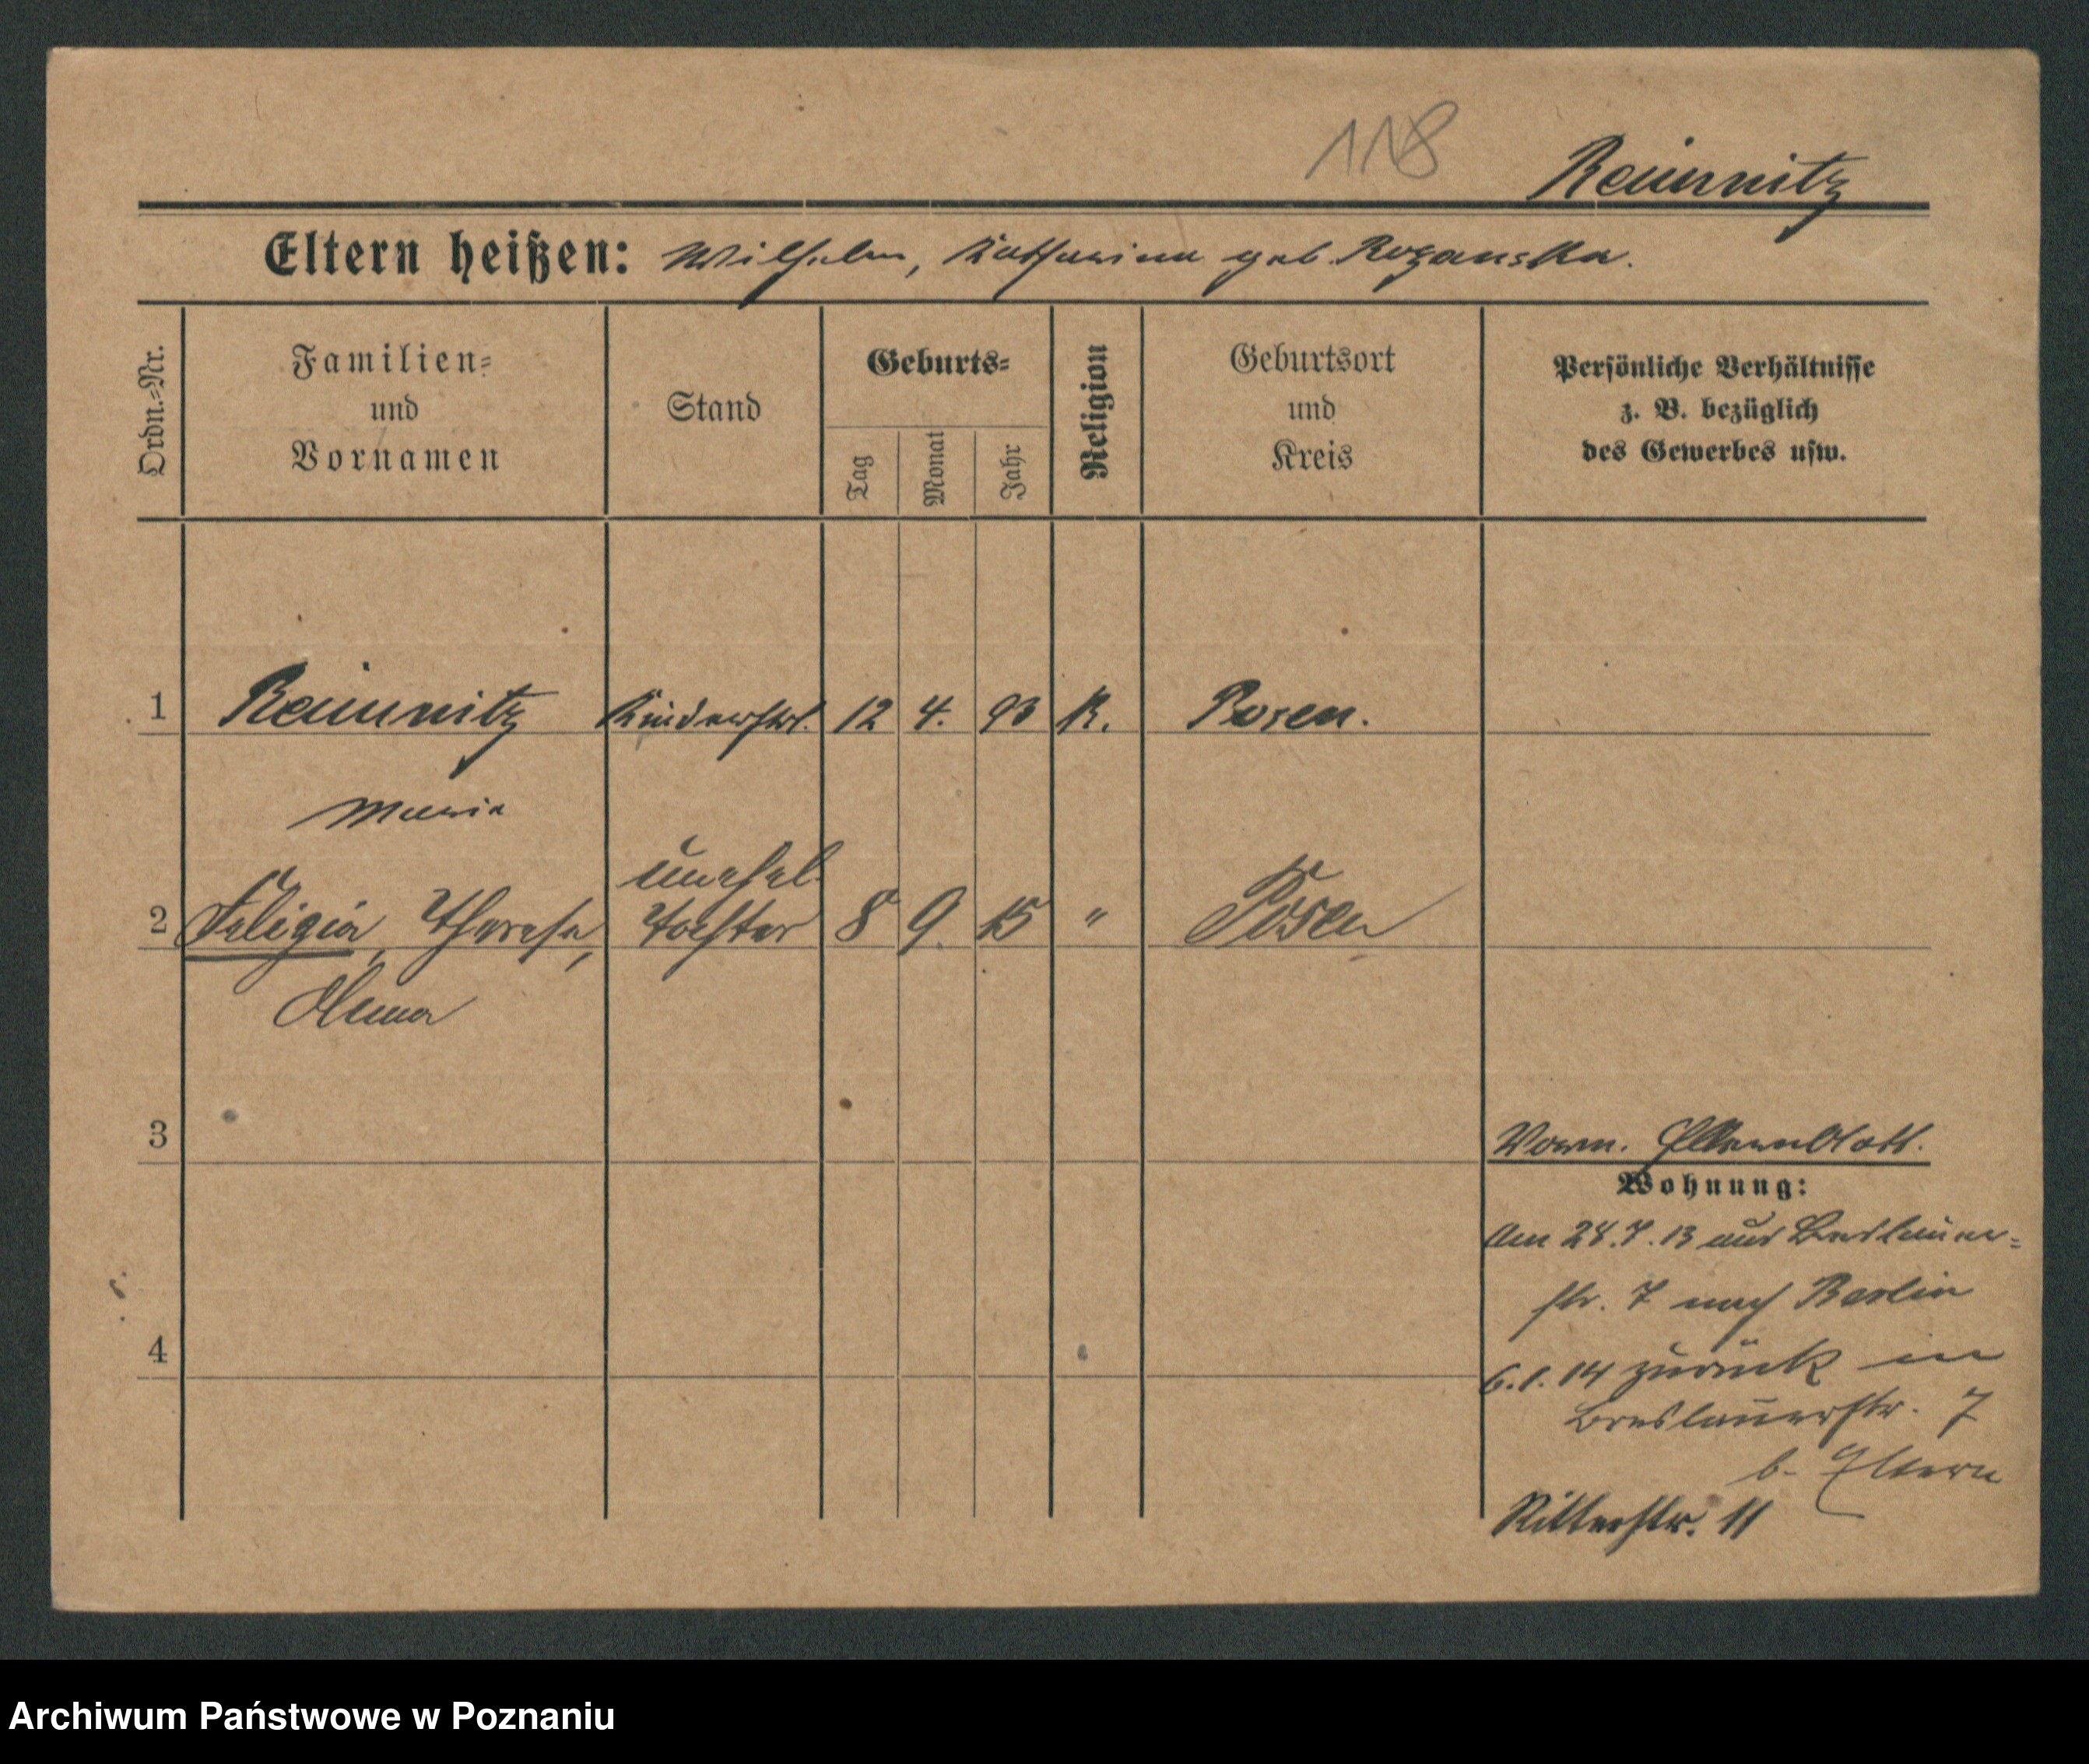 118
Reimnitz
Eltern heißen: Wilhelm, Katharina geb. Rozanska.
Ordn.=Nr.
Familien=
und
Vornamen
Stand
Geburts=
Tag
Monat
Jahr
Religion
Geburtsort
und
Kreis
Persönliche Verhältnisse
z. B. bezüglich
des Gewerbes usw.
1 Reimnitz Kinderfrl. 12 4. 93 K. Posen.
Maria
unehel.
2 Feligia, Therese, Tochter 8 9. 15 " Posen
Anna
3
Vorm. Elternblatt.
Wohnung:
Am 24.7.13 aus Breslauer=
str. 7 nach Berlin
4
6.1.14 zurück in
Breslauerstr. 7
b. Eltern
Ritterstr. 11
Archiwum Państwowe w Poznaniu